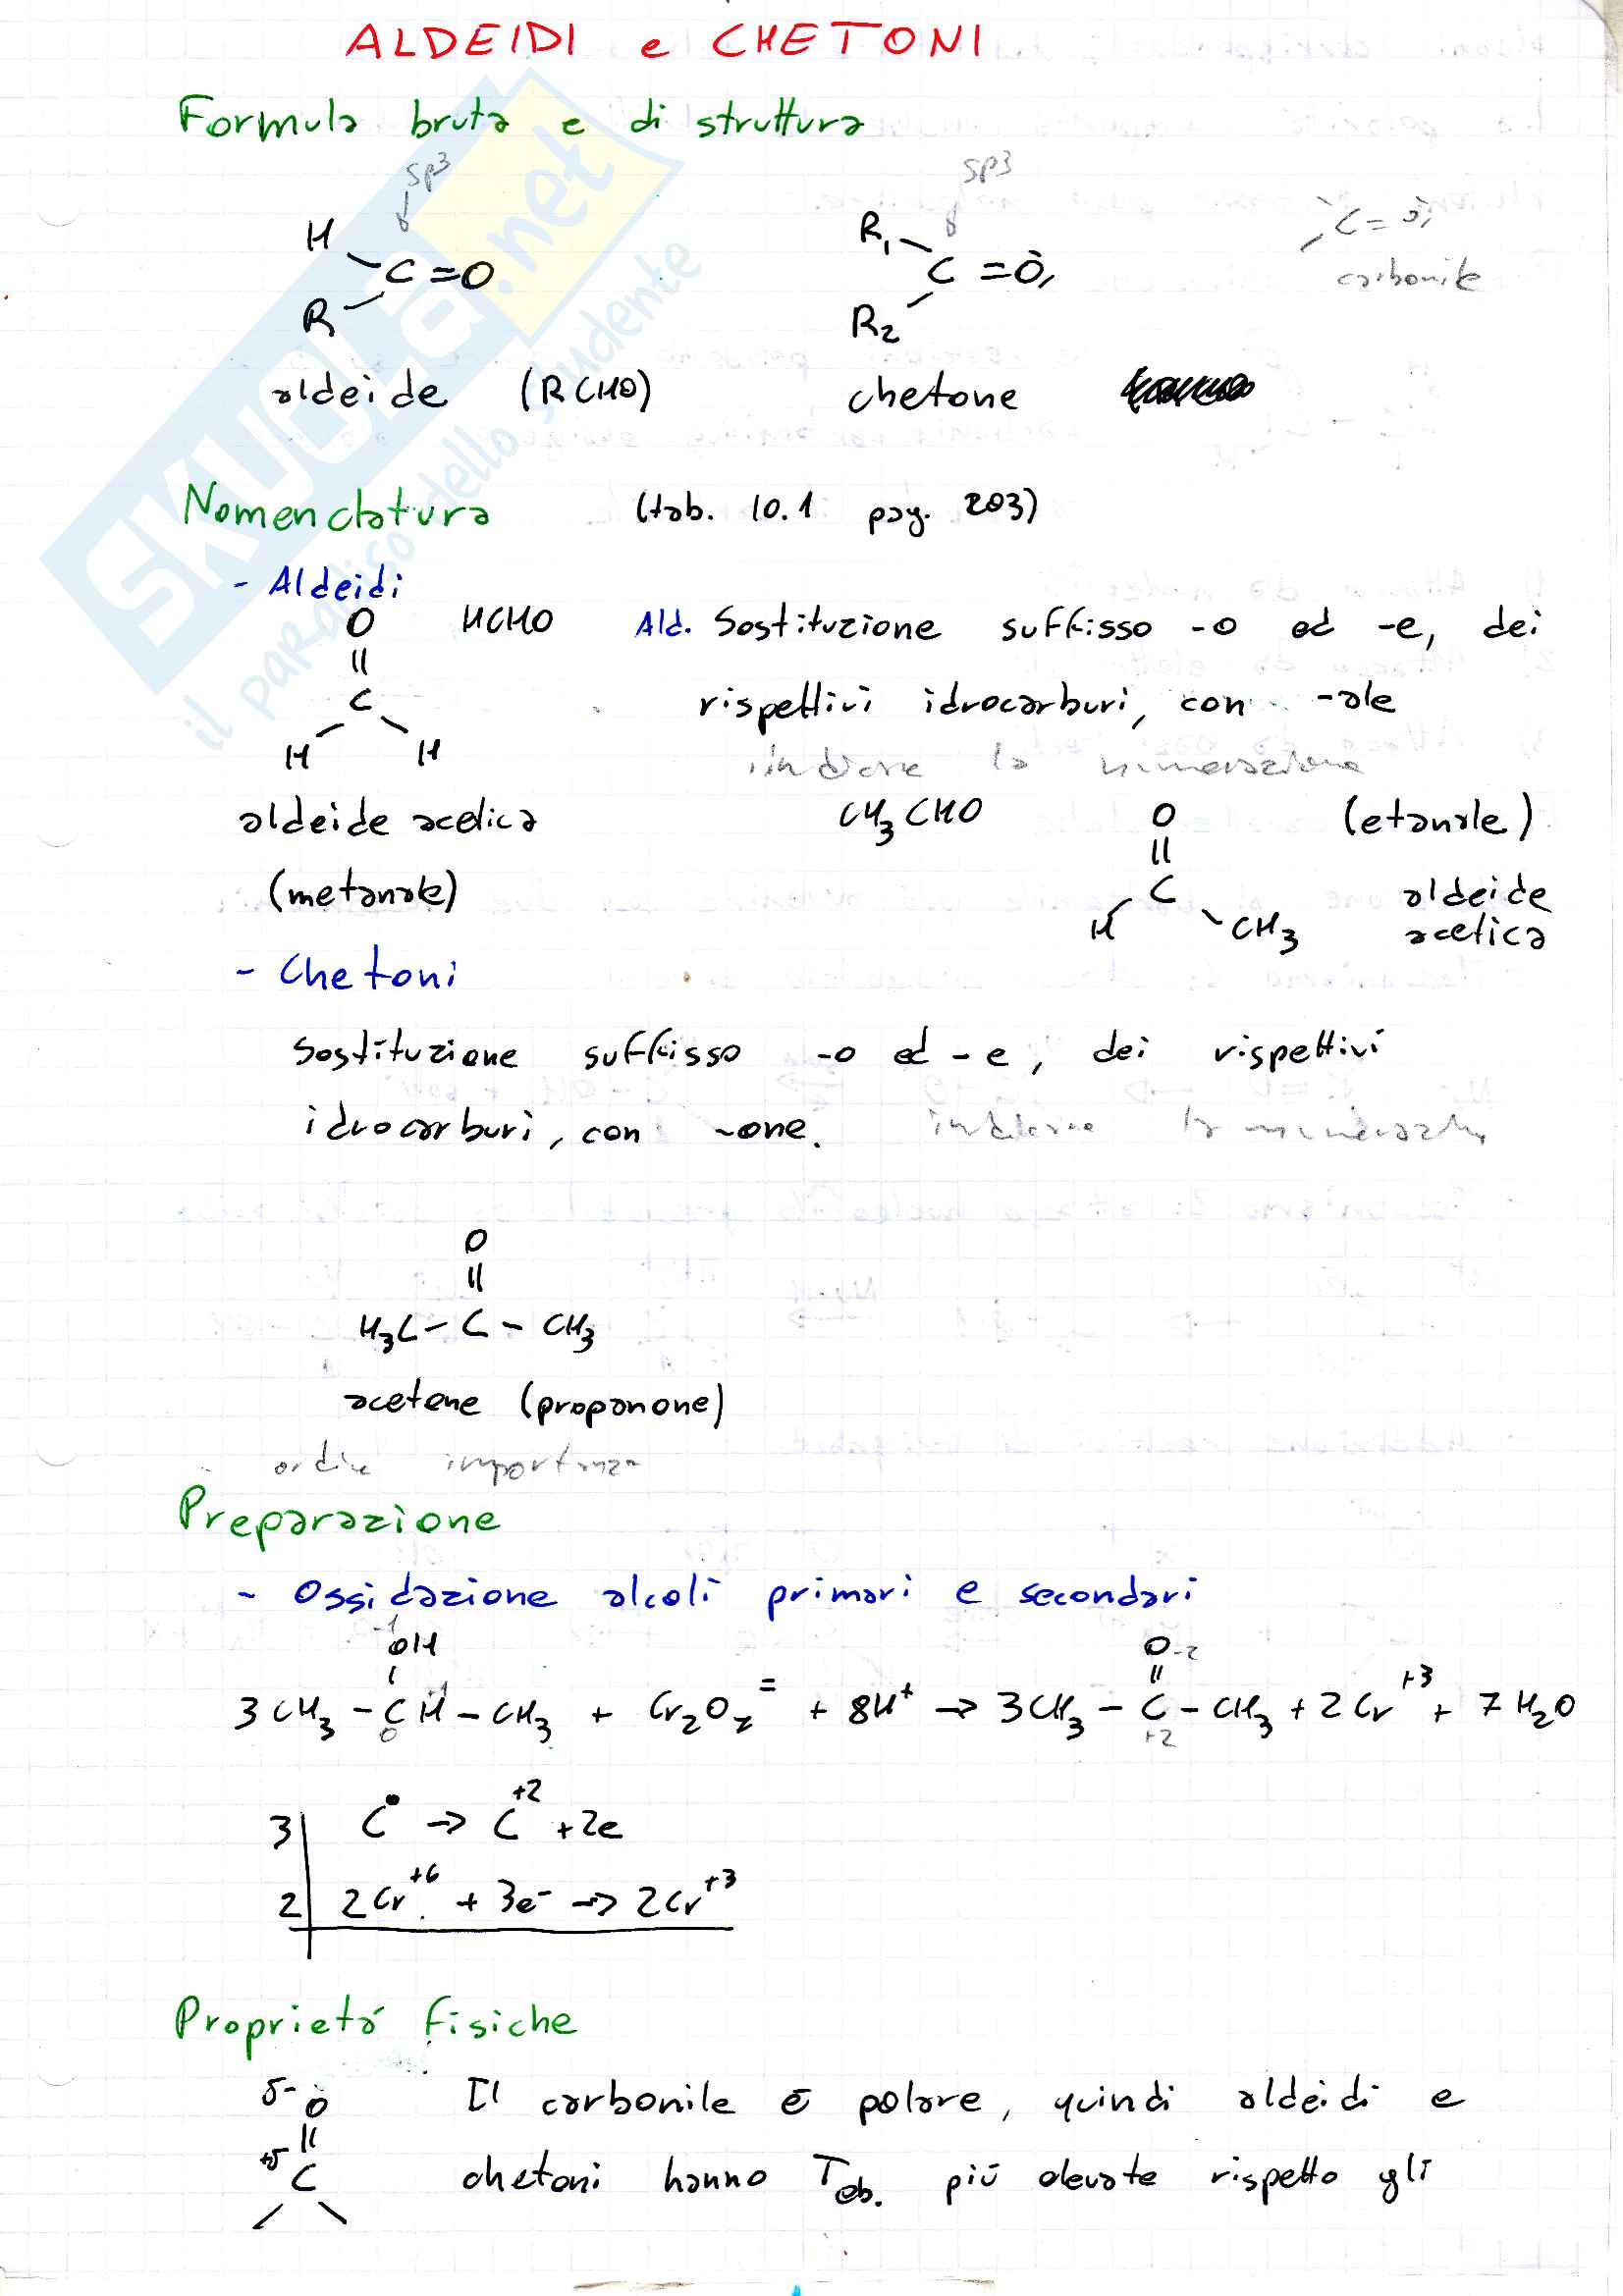 ALDEIDI e CHETONI
Formula bruta e di struttura
sp3 sp3
H R1 C=O
C=O C=O carbonile
R R2
aldeide (RCHO) chetone
Nomenclatura (tab. 10.1 pag. 203)
- Aldeidi
O HCHO Ald. Sostituzione suffisso -o ed -e, dei
||
C rispettivi idrocarburi, con -ale
H H indicare la numerazione
aldeide acetica CH3CHO O (etanale)
||
(metanale) C aldeide
H CH3 acetica
- Chetoni
Sostituzione suffisso -o ed -e, dei rispettivi
idrocarburi, con -one. indicare la
O
||
H3C - C - CH3
acetone (propanone)
ordine importanza
Preparazione
- Ossidazione alcoli primari e secondari
-1 OH O -2
3CH3 - CH - CH3 + Cr2O7= + 8H+ → 3CH3 - C - CH3 + 2Cr+3 + 7H2O
0 +1 +2
3 | C0 → C+2 + 2e
2 | 2Cr+6 + 3e- → 2Cr+3
Proprietà fisiche
δ- O Il carbonile è polare, quindi aldeidi e
||
+δ C chetoni hanno Teb. più elevate rispetto gli
SKUOLA.net
il paradiso dello studente